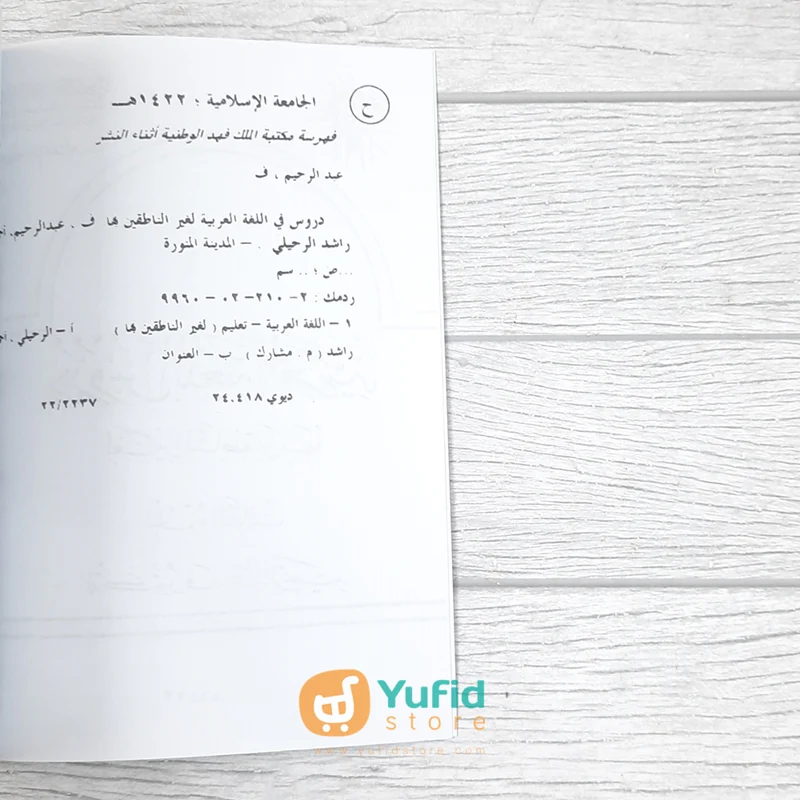 ح الجامعة الإسلامية ؛ ١٤٢٢هـــ
فهرسة مكتبة الملك فهد الوطنية أثناء النشر
عبد الرحيم ، ف
دروس في اللغة العربية لغير الناطقين بها ف ، عبدالرحيم،
راشد الرحيلي . – المدينة المنورة
...ص ؛ .. سم
ردمك : ٢- ٢١٠- ٠٢ - ٩٩٦٠
١ – اللغة العربية – تعليم ( لغير الناطقين بها ) أ – الرحيلي ،
راشد ( م . مشارك ) ب – العنوان
ديوي ٢٤،٤١٨ ٢٢/٢٢٣٧
Yufid
store
www.yufidstore.com